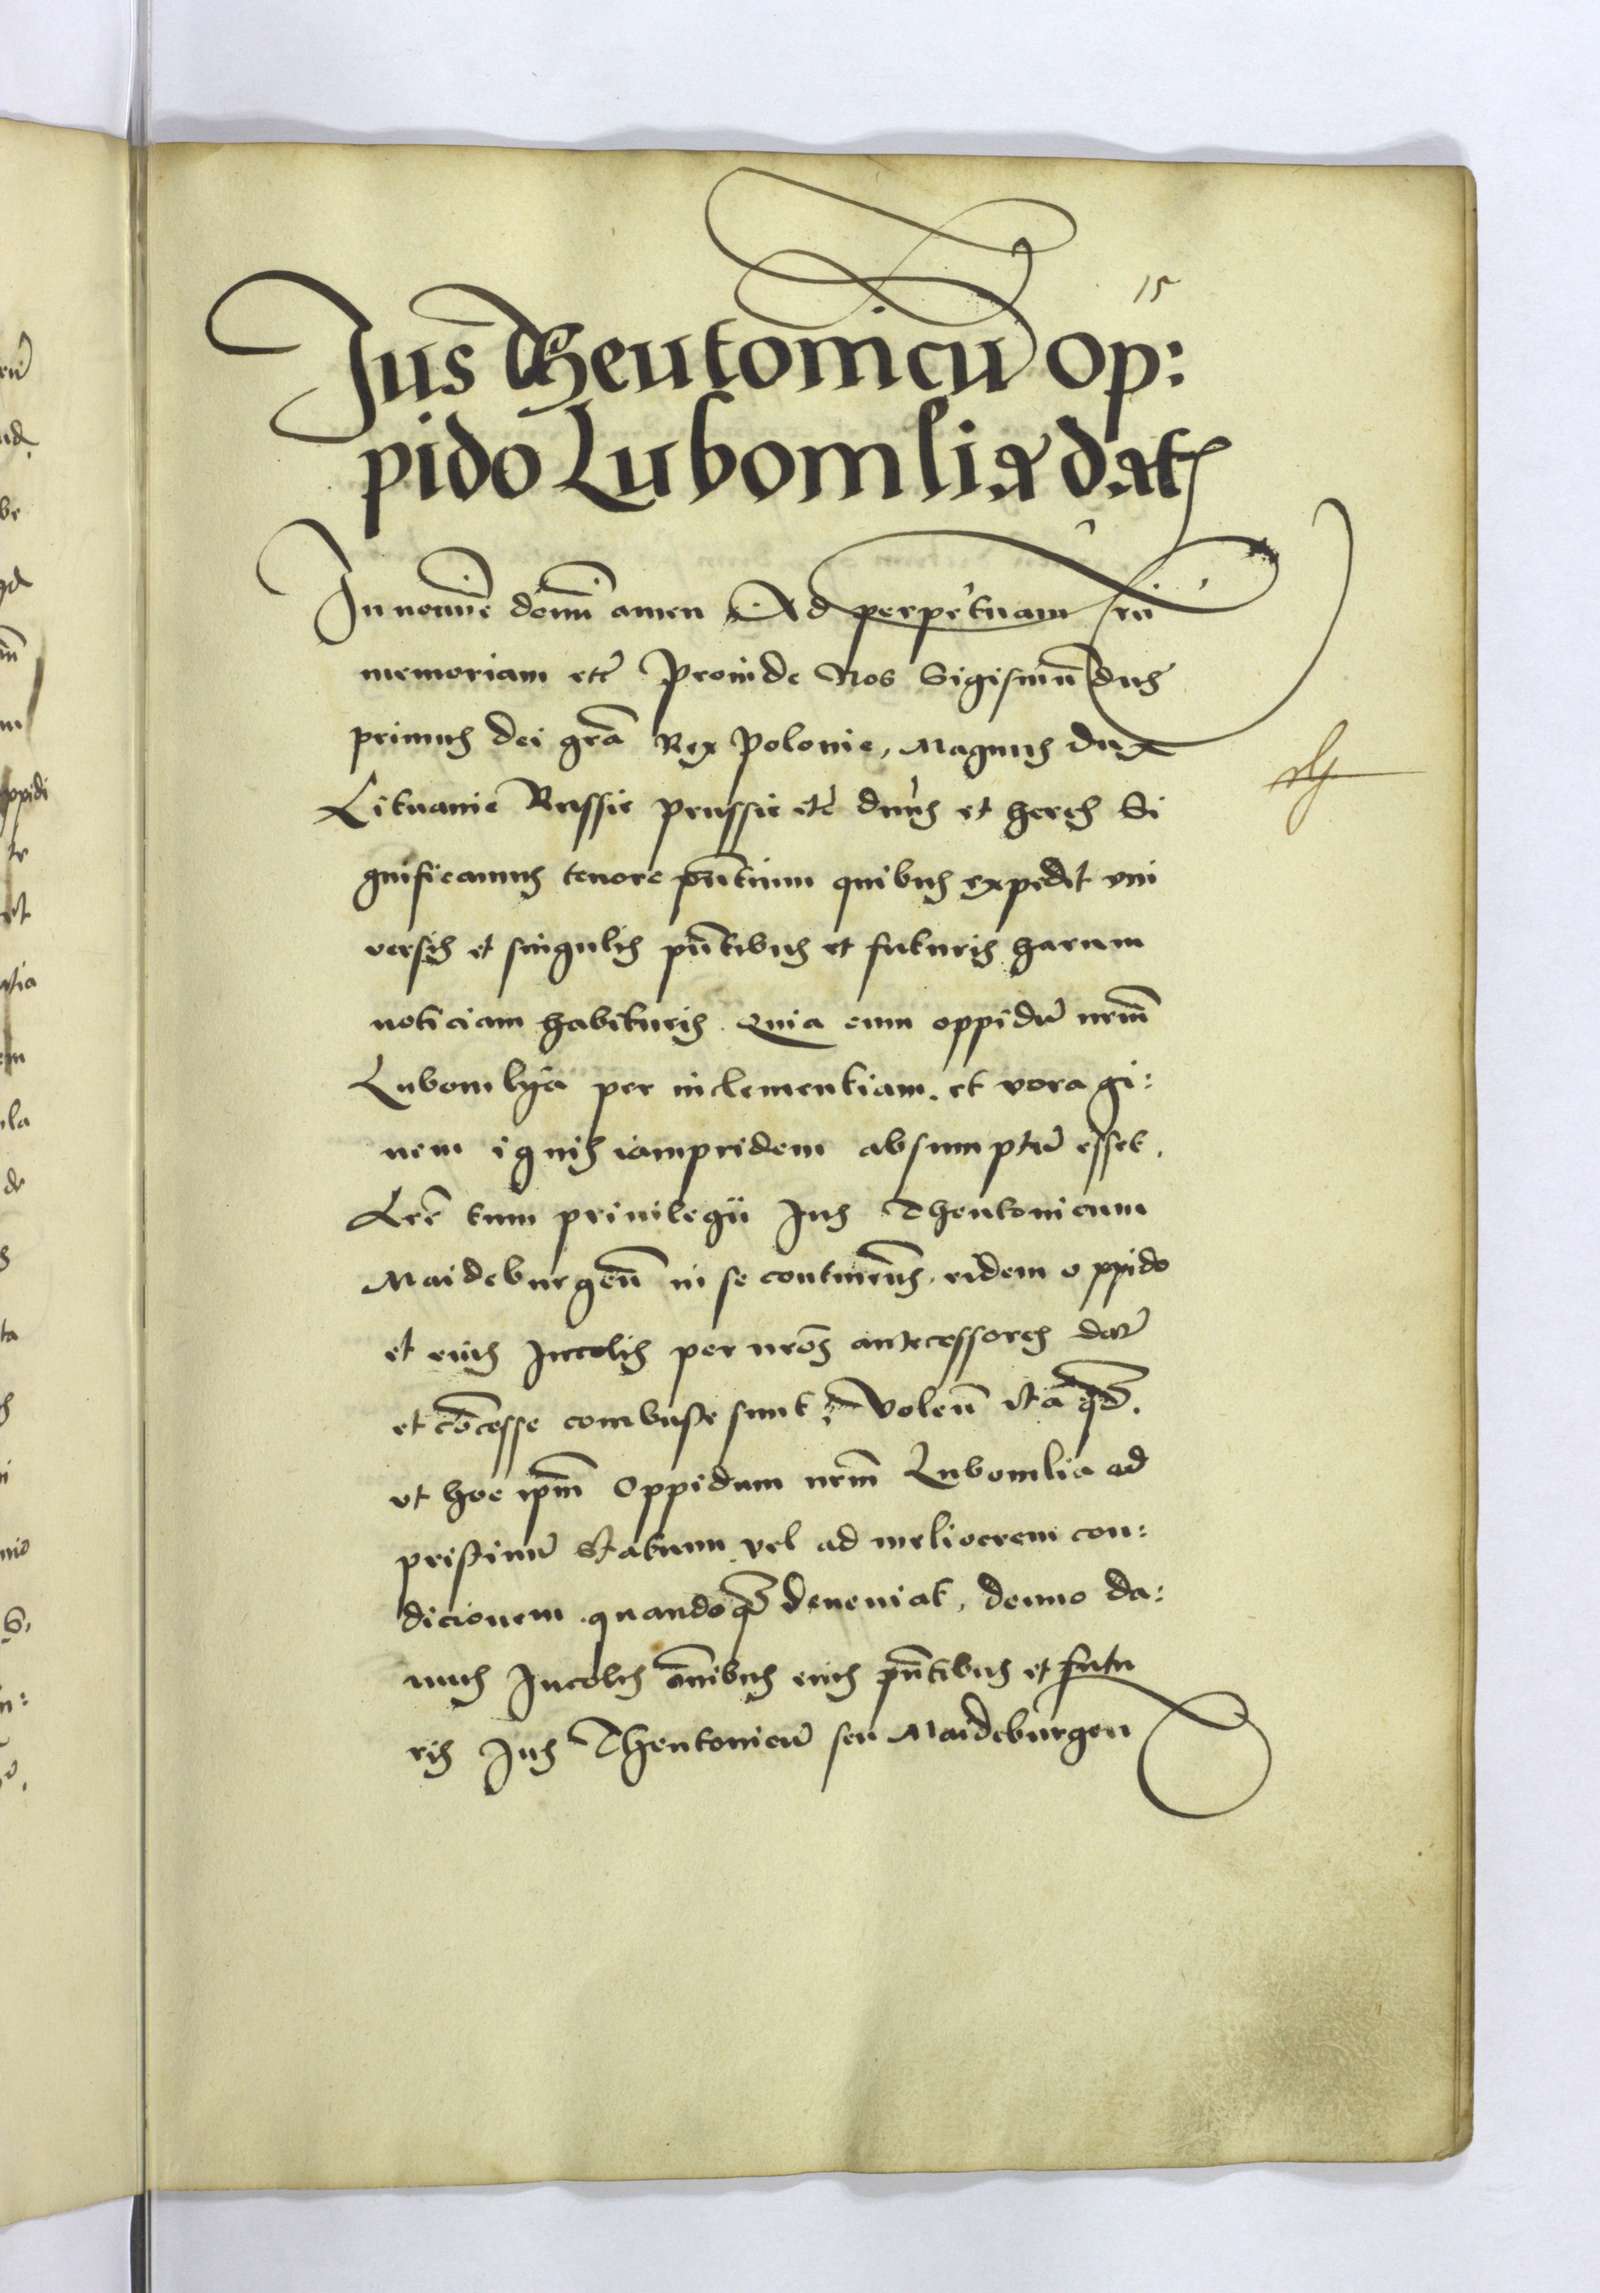 15
Jus Theutonicū op:
pido Lubomlia dat
In noīe dōmi amen Ad perpetuam rū
memoriam etc̄ Proinde Nos Sigismūdus
primus dei grā Rex Polonie, Magnus dux
Lituanie Russie prussie etc̄ dnūs et heres Si
gnificamus tenore pn̄tium quibus expedit vni
versis et singulis pn̄tibus et futuris harum
noticiam habituris. Quia cum oppidū nrm̄
Lubomlya per inclementiam. et voragi:
nem ignis iampridem absumptū esset.
Lrē tum priuilegii Jus Theutonicum
Maideburgen̄ in se continen̄s. eidem oppido
et eius Incolis per nrōs antecessores dat̄
et cōcesse combuste sunt; Volen̄ ita qd̄.
vt hoc ipm̄ Oppidum nrm̄ Lubomlia ad
pristinū statum vel ad meliorem con:
dicionem quandoq̄ deueniat, denuo da:
mus Incolis ōnibus eius pn̄tibus et futu
ris Jus Theutonicū seu Maideburgen